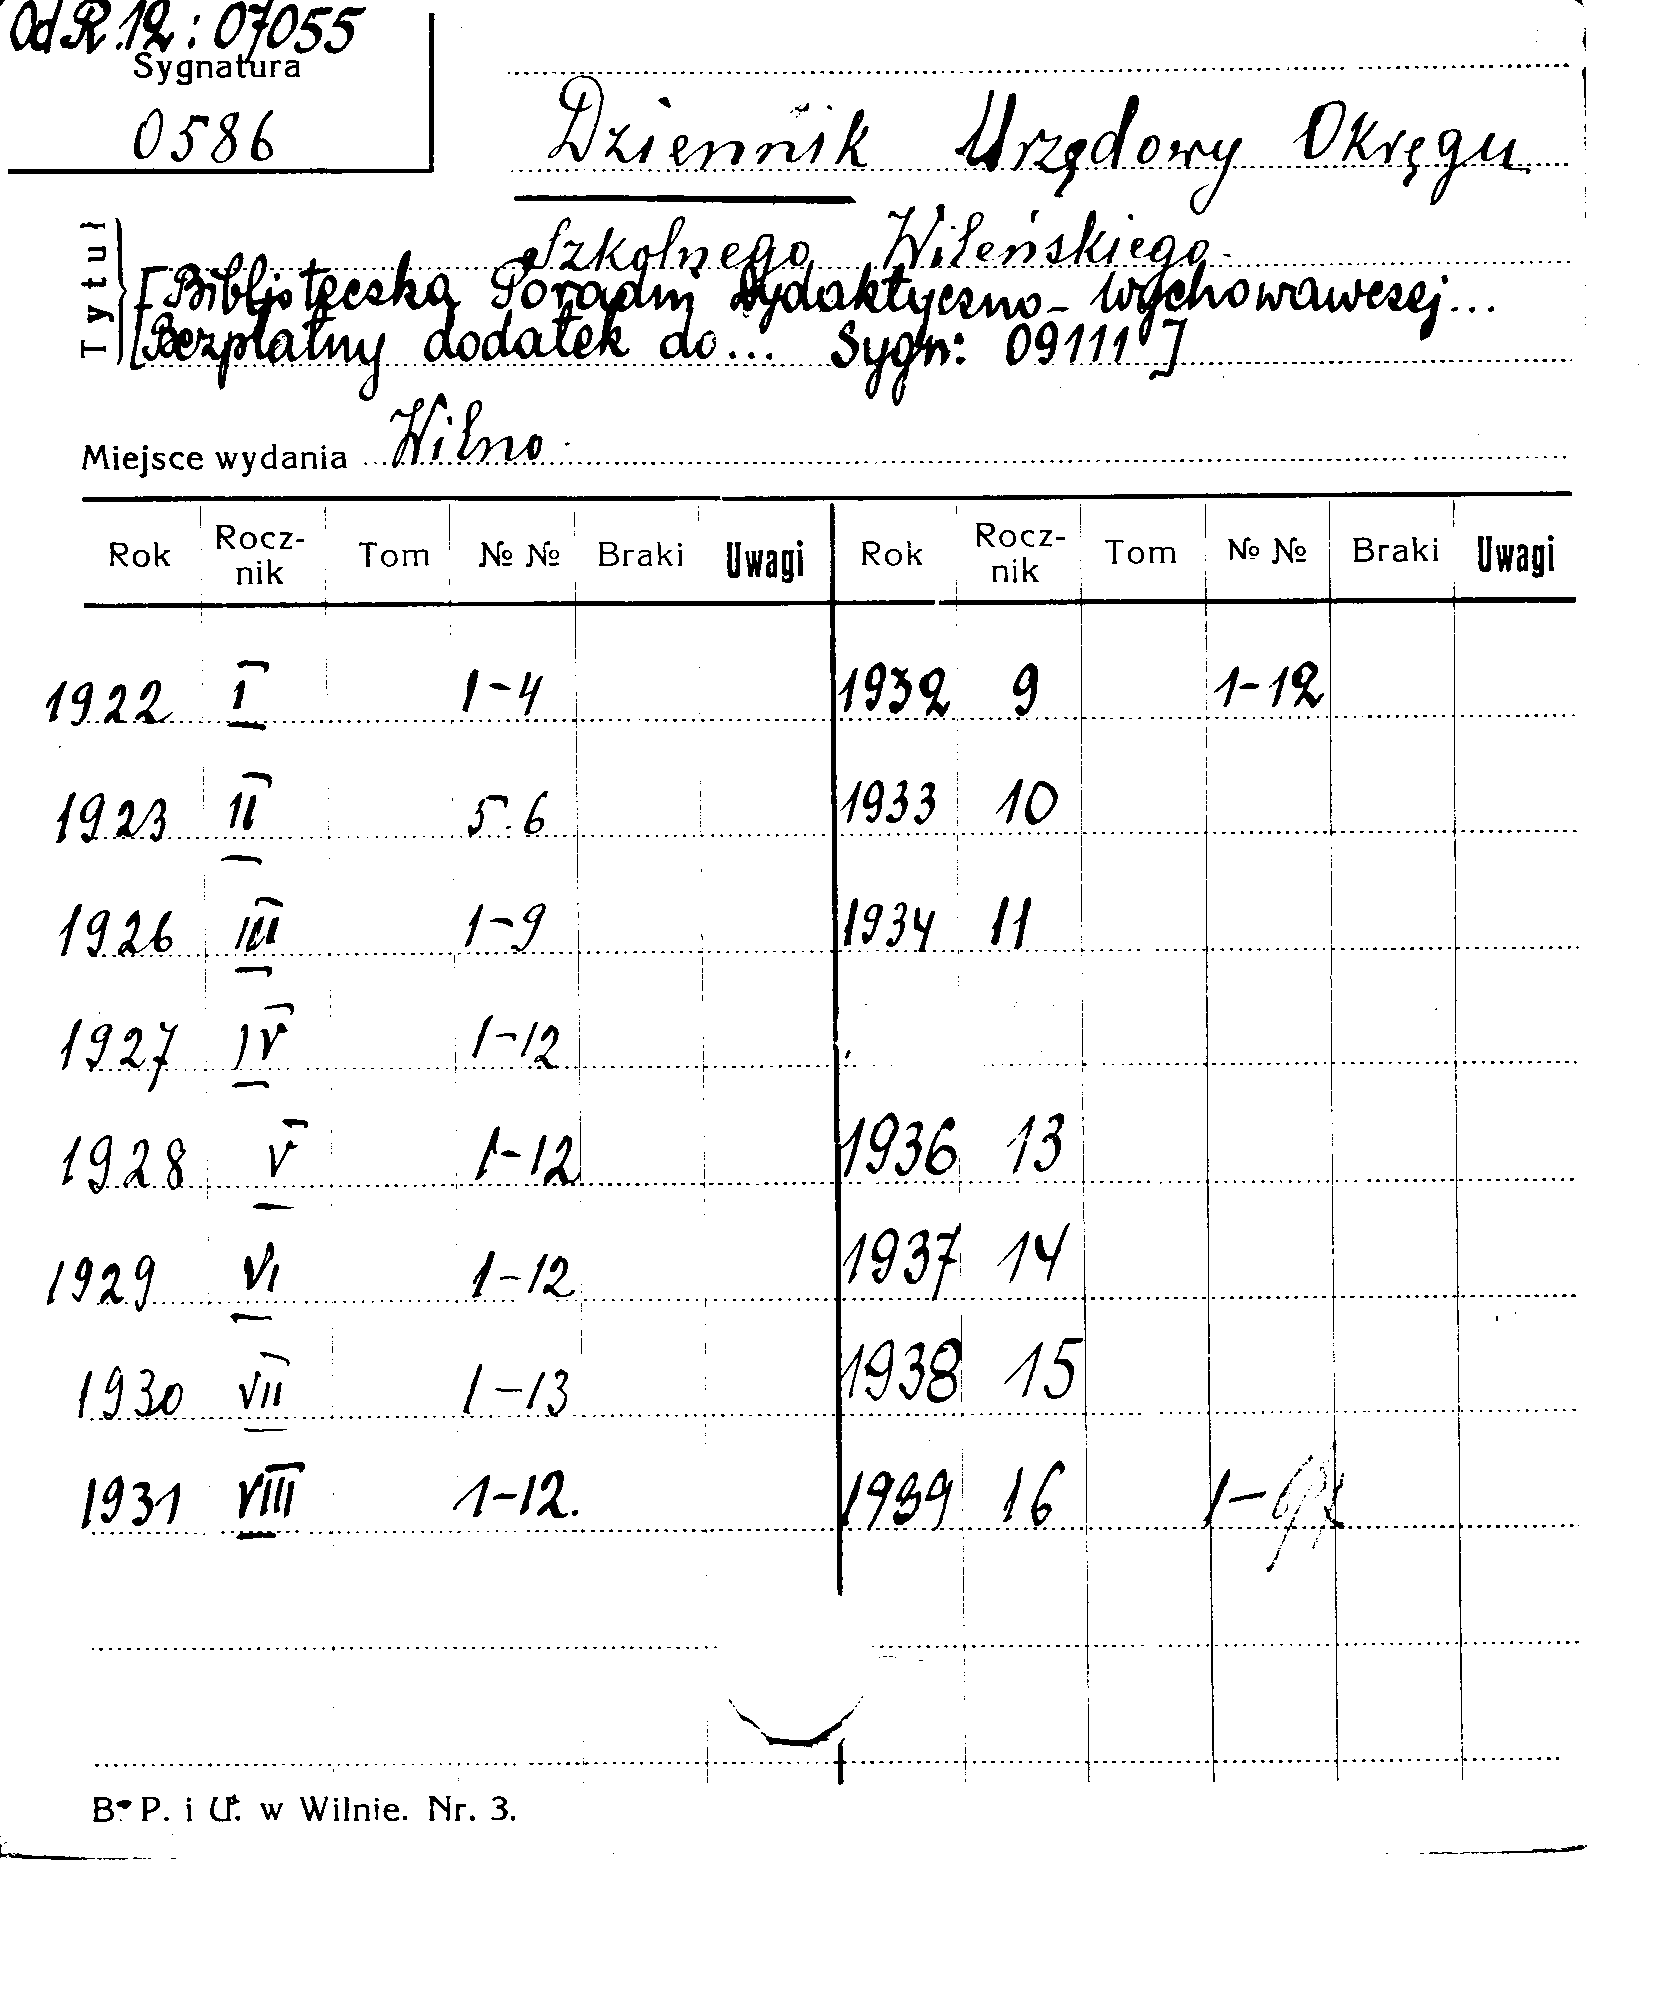 Od R.12: 07055
Sygnatura
0586
Dziennik Urzędowy Okręgu
Szkolnego Wileńskiego.
Tytuł
[Bibljoteczka Poradni Dydaktyczno-Wychowawczej...
Bezpłatny dodatek do... Sygn: 09111]
Miejsce wydania Wilno.
Rok Rocz-nik Tom № № Braki Uwagi Rok Rocz-nik Tom № № Braki Uwagi
1922 I 1-4 1932 9 1-12
1923 II 5.6 1933 10
1926 III 1-9 1934 11
1927 IV 1-12
1928 V 1-12 1936 13
1929 VI 1-12 1937 14
1930 VII 1-13 1938 15
1931 VIII 1-12. 1939 16 1-
B. P. i U. w Wilnie. Nr. 3.